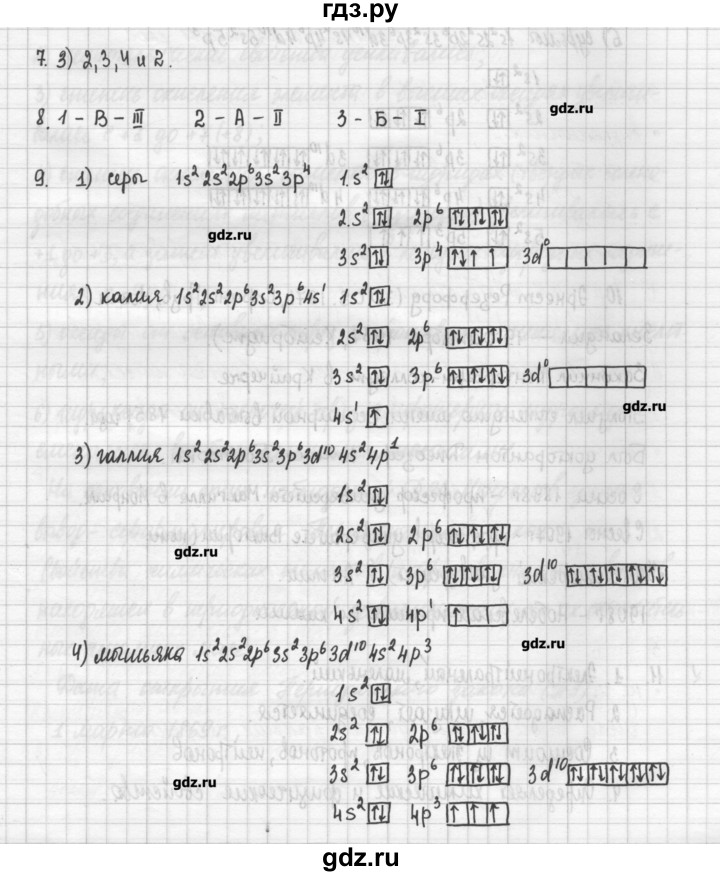 гдз.ру
7. 3) 2, 3, 4 и 2.
8. 1 – В – III 2 – А – II 3 – Б – I
gdz.ru
9. 1) серы 1s² 2s² 2p⁶ 3s² 3p⁴ 1.s² ↑↓
2.s² ↑↓ 2p⁶ ↑↓ ↑↓ ↑↓
gdz.ru
3s² ↑↓ 3p⁴ ↑↓ ↑ ↑ 3d⁰
2) калия 1s² 2s² 2p⁶ 3s² 3p⁶ 4s¹ 1s² ↑↓
2s² ↑↓ 2p⁶ ↑↓ ↑↓ ↑↓
3s² ↑↓ 3p⁶ ↑↓ ↑↓ ↑↓ 3d⁰
gdz.ru
4s¹ ↑
3) галлия 1s² 2s² 2p⁶ 3s² 3p⁶ 3d¹⁰ 4s² 4p¹
1s² ↑↓
2s² ↑↓ 2p⁶ ↑↓ ↑↓ ↑↓
gdz.ru
3s² ↑↓ 3p⁶ ↑↓ ↑↓ ↑↓ 3d¹⁰ ↑↓ ↑↓ ↑↓ ↑↓ ↑↓
4s² ↑↓ 4p¹ ↑
gdz.ru
4) мышьяка 1s² 2s² 2p⁶ 3s² 3p⁶ 3d¹⁰ 4s² 4p³
1s² ↑↓
2s² ↑↓ 2p⁶ ↑↓ ↑↓ ↑↓
3s² ↑↓ 3p⁶ ↑↓ ↑↓ ↑↓ 3d¹⁰ ↑↓ ↑↓ ↑↓ ↑↓ ↑↓
gdz.ru
4s² ↑↓ 4p³ ↑ ↑ ↑
gdz.ru